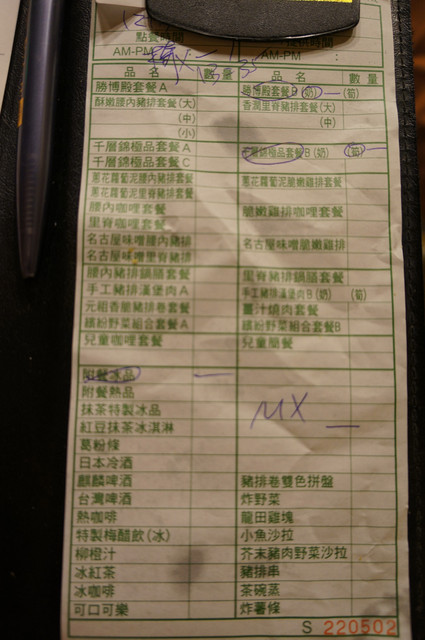 點餐時間
AM-PM AM-PM :
品名 數量 品名 數量
勝博殿套餐A 勝博殿套餐B (奶) (荀)
酥嫩腰內豬排套餐(大) 香潤里脊豬排套餐(大)
(中) (中)
(小)
千層錦極品套餐A 千層錦極品套餐B (奶) (荀)
千層錦極品套餐C
蔥花蘿蔔泥腰內豬排套餐 蔥花蘿蔔泥脆嫩雞排套餐
蔥花蘿蔔泥里脊豬排套餐
腰內咖哩套餐 脆嫩雞排咖哩套餐
里脊咖哩套餐
名古屋味噌腰內豬排 名古屋味噌脆嫩雞排
名古屋味噌里脊豬排
腰內豬排鍋膳套餐 里脊豬排鍋膳套餐
手工豬排漢堡肉A 手工豬排漢堡肉B (奶) (荀)
元祖香脆豬排卷套餐 薑汁燒肉套餐
繽紛野菜組合套餐A 繽紛野菜組合套餐B
兒童咖哩套餐 兒童簡餐
附餐冰品
附餐熱品
抹茶特製冰品 MX
紅豆抹茶冰淇淋
葛粉條
日本冷酒
麒麟啤酒 豬排卷雙色拼盤
台灣啤酒 炸野菜
熱咖啡 龍田雞塊
特製梅醋飲(冰) 小魚沙拉
柳橙汁 芥末豬肉野菜沙拉
冰紅茶 豬排串
冰咖啡 茶碗蒸
可口可樂 炸薯條
S 220502